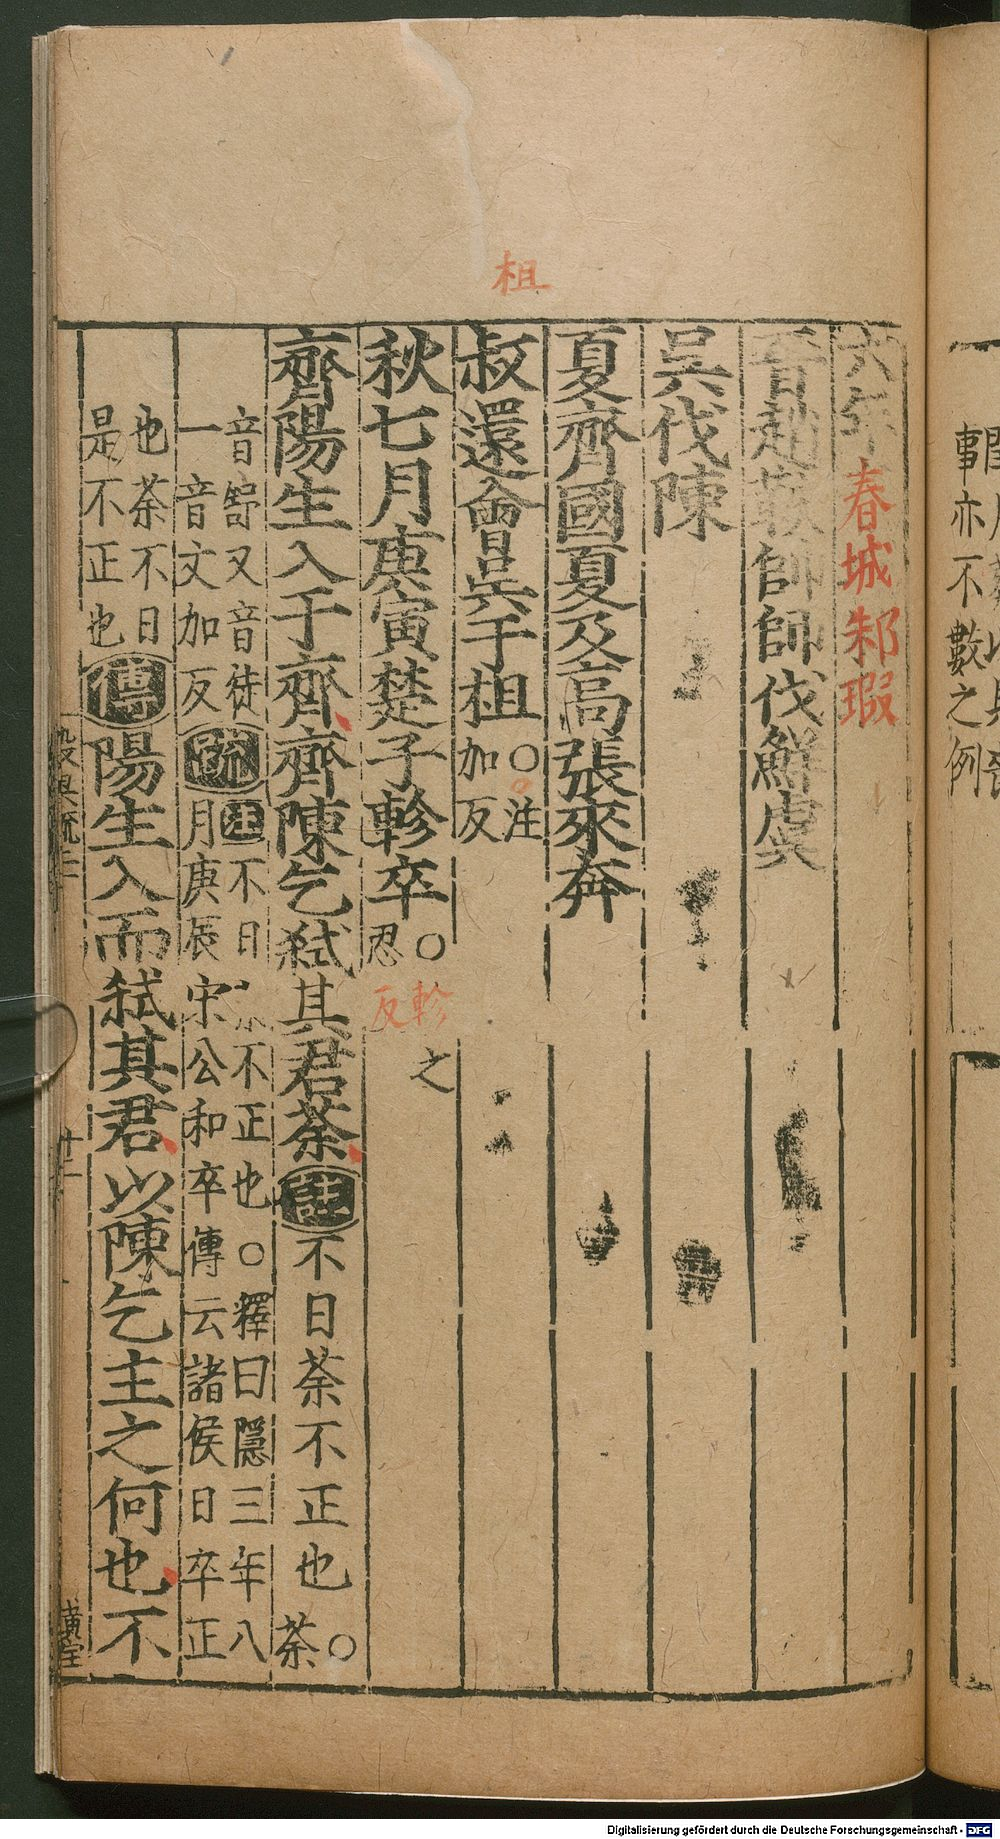 柤
六年春城邾瑕
晉趙鞅帥師伐鮮虞
吳伐陳
夏齊國夏及高張來奔
叔還會吳于柤○注
加反
秋七月庚寅楚子軫卒○軫之
忍反
齊陽生入于齊齊陳乞弒其君荼註不日荼不正也○
荼
音舒又音徒疏注不日 不正也○釋曰隱三年八
一音文加反 月庚辰宋公和卒傳云諸侯日卒正
也荼不日
是不正也傳陽生入而弒其君以陳乞主之何也不
十二
事亦不數之例
Digitalisierung gefördert durch die Deutsche Forschungsgemeinschaft - DFG